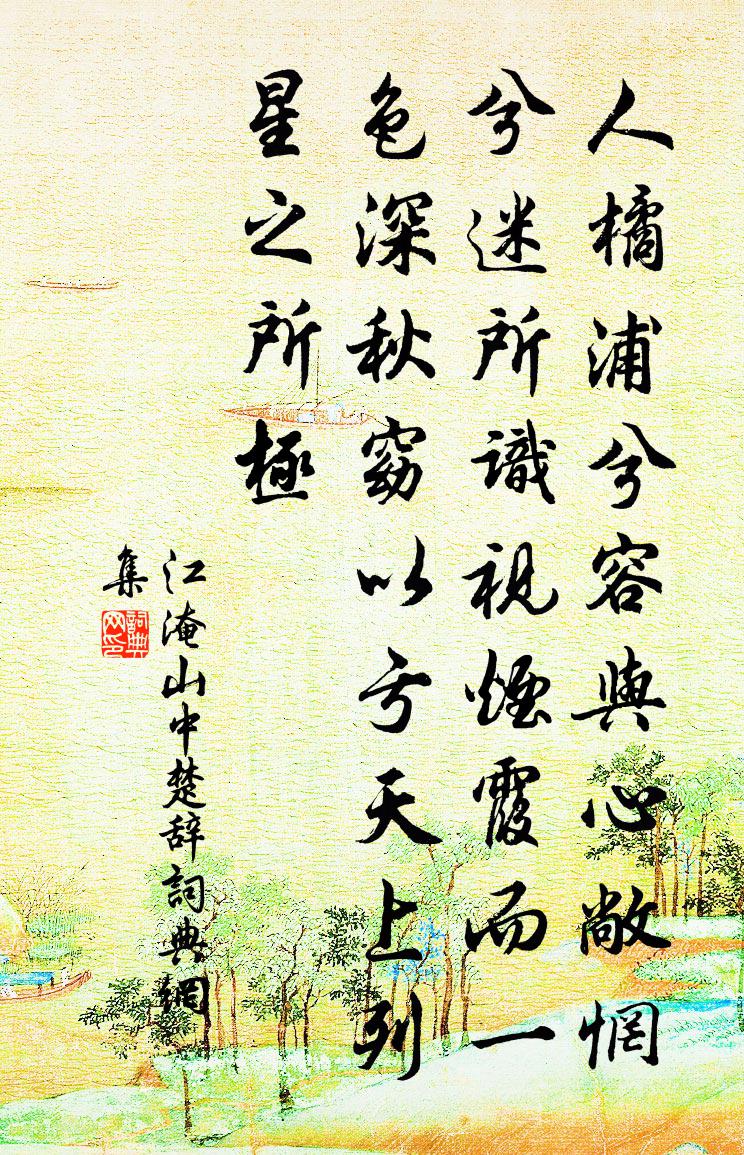 人橘浦兮容與心敞惘
兮迷所識視煙霞而一
色深秋窈以亏天上列
星之所極
江淹山中楚辭詞典網
集
詞典網印